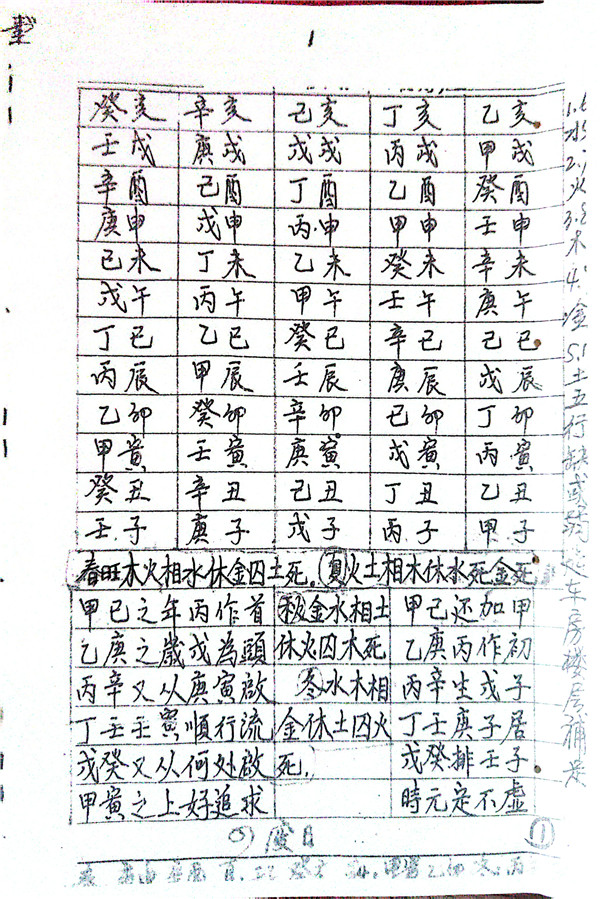 1
癸亥 辛亥 己亥 丁亥 乙亥
壬戌 庚戌 戊戌 丙戌 甲戌
辛酉 己酉 丁酉 乙酉 癸酉
庚申 戊申 丙申 甲申 壬申
己未 丁未 乙未 癸未 辛未
戊午 丙午 甲午 壬午 庚午
丁巳 乙巳 癸巳 辛巳 己巳
丙辰 甲辰 壬辰 庚辰 戊辰
乙卯 癸卯 辛卯 己卯 丁卯
甲寅 壬寅 庚寅 戊寅 丙寅
癸丑 辛丑 己丑 丁丑 乙丑
壬子 庚子 戊子 丙子 甲子
春旺木火相水休金囚土死。夏火土相木休水死金死
甲己之年丙作首
乙庚之歲戊為頭
丙辛又从庚寅啟
丁壬壬寅順行流
戊癸又从何处啟
甲寅之上好追求
秋金水相土
休火囚木死
冬水木相
金休土囚火
死。
甲己还加甲
乙庚丙作初
丙辛生戊子
丁壬庚子居
戊癸排壬子
時元定不虚
1
水 2. 火 3. 木 4. 金 5. 土五行缺或弱 车房楼层補